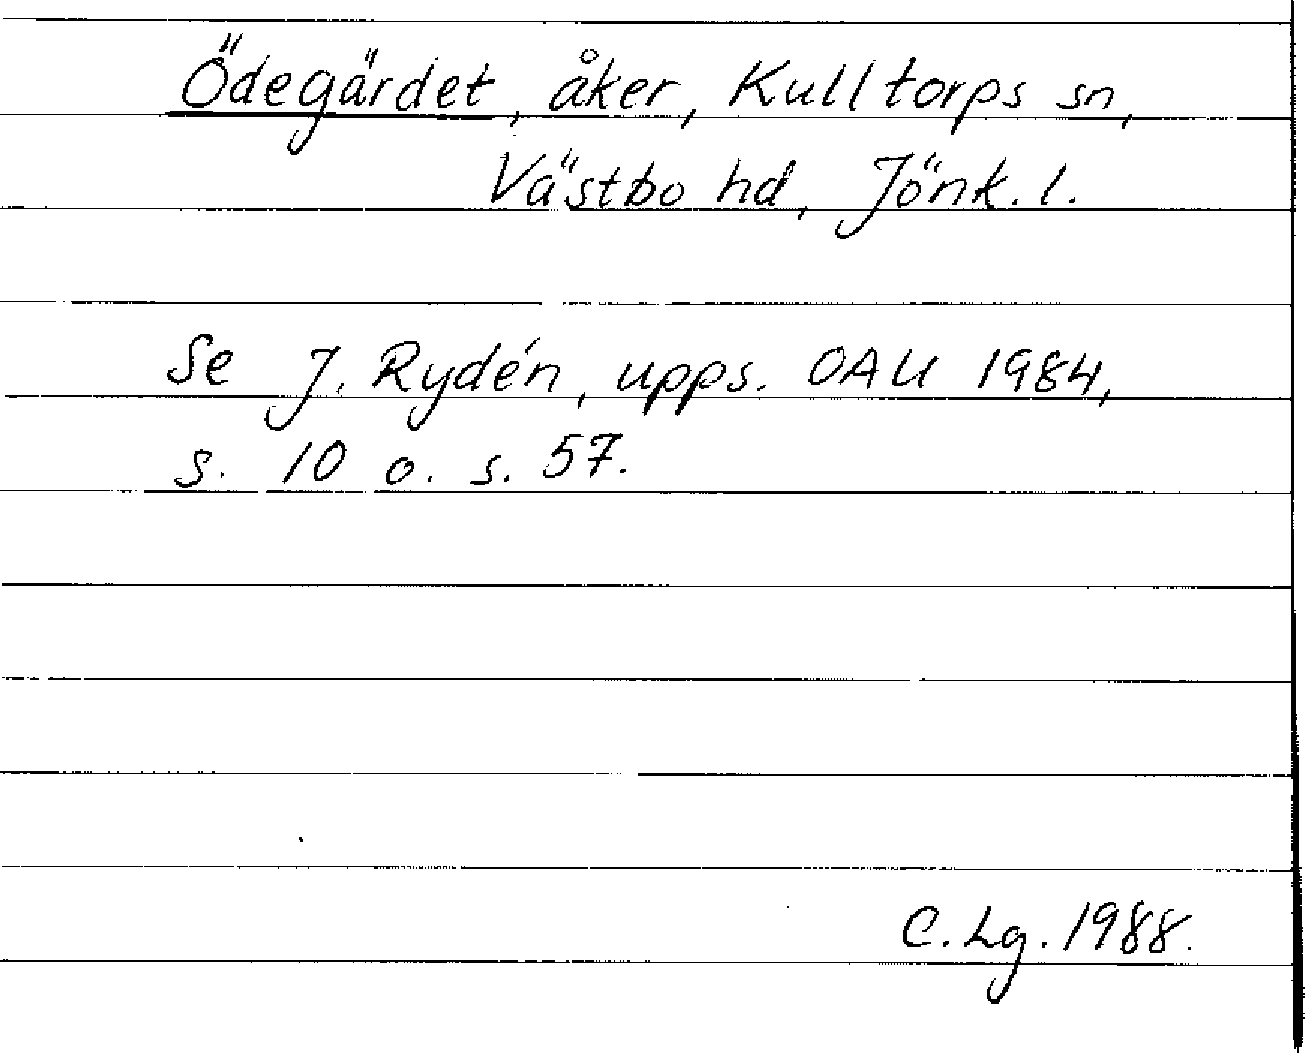 Ödegärdet, åker, Kulltorps sn,
Västbo hd, Jönk. l.
Se J. Rydén, upps. OAU 1984,
s. 10 o. s. 57.
C. Lg. 1988.